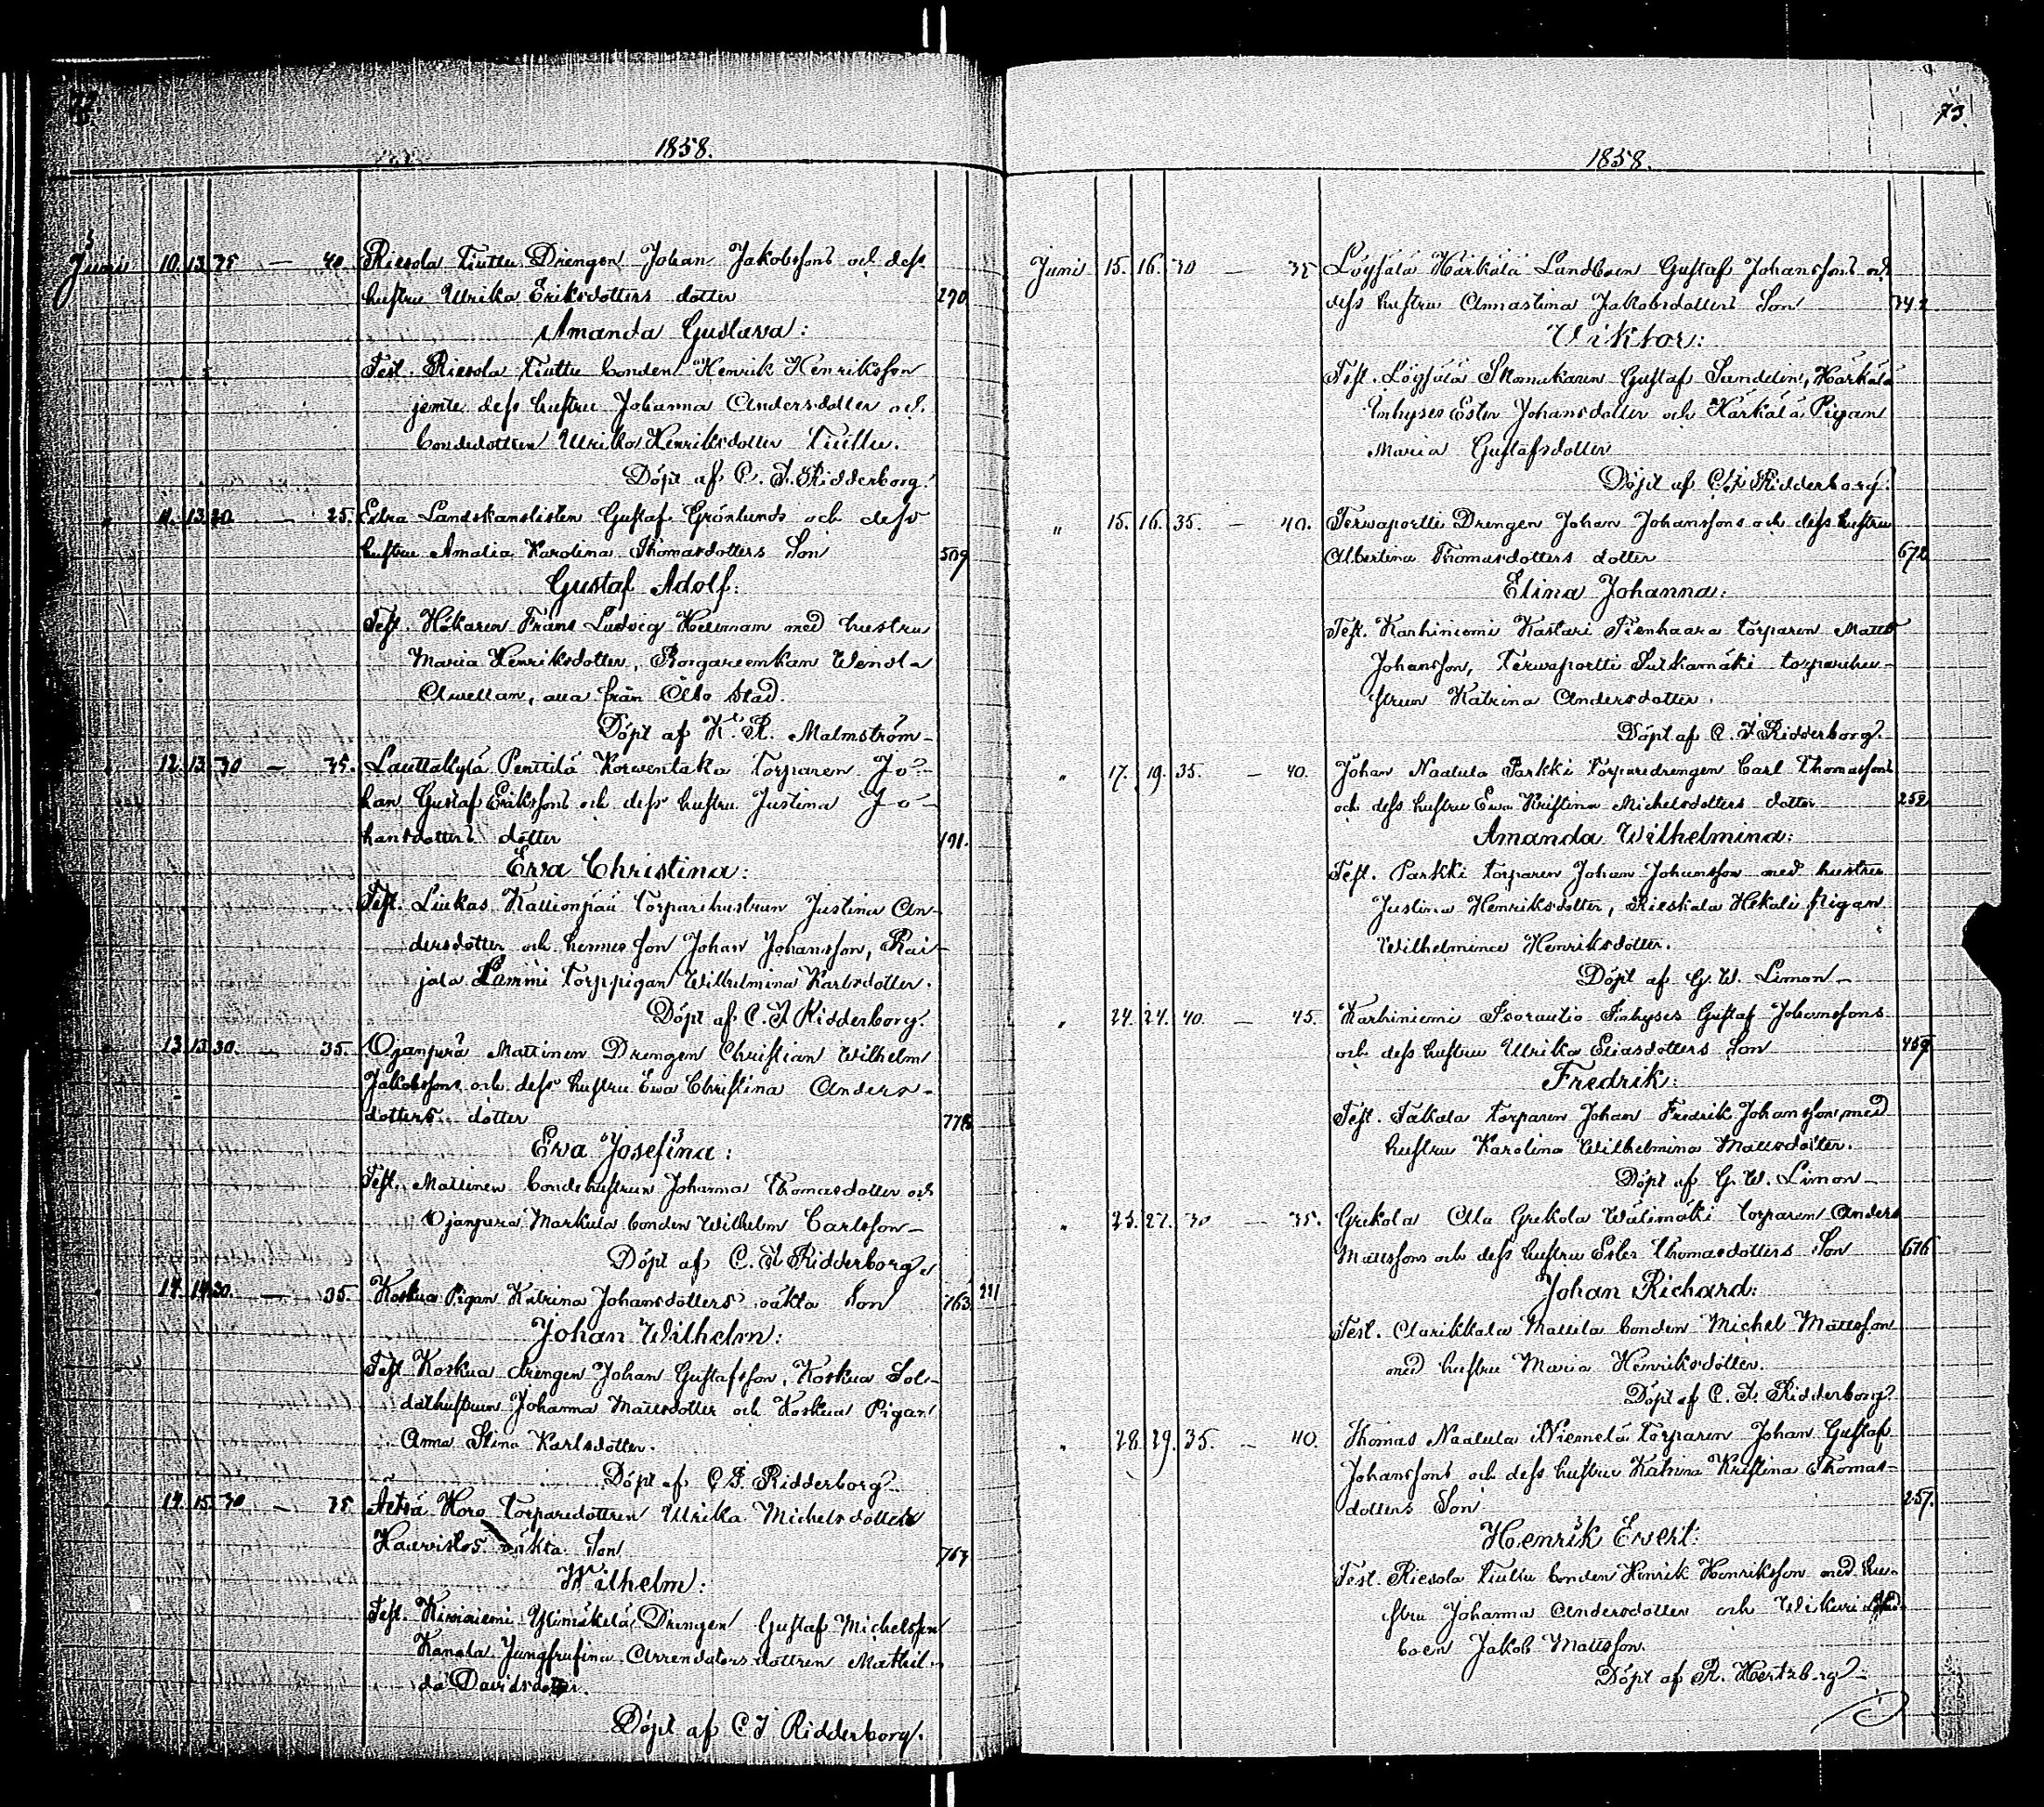 72.
1858.
Juni 10. 13. 35 — 40 Riesola Tiuttu Drengen Johan Jakobssons och dess
hustru Ulrika Eriksdotters dotter 270
Amanda Gustava:
Test. Riesola Tiuttu bonden Henrik Henriksson
jemte dess hustru Johanna Andersdotter och
bondedottren Ulrika Henriksdotter Tiuttu.
Döpt af C. J. Ridderborg.
" 11. 13. 20. — 25. Landskanslisten Gustaf Grönlunds och dess
hustru Amalia Karolina Thomasdotters Son 509
Gustaf Adolf:
Test. Hökaren Frans Ludvig med hustru
Maria Henriksdotter, Borgareenkan Wendla
alla från Åbo Stad.
Döpt af K. R. Malmström
" 12. 13. 30 — 35. Lauttakylä Penttilä Korventaka torparen Jo-
han Gustaf Erikssons och dess hustru Justina Jo-
hansdotters dotter 191.
Eva Christina:
Test. Liukas Kallionpää torparihustrun Justina An-
dersdotter och hennes son Johan Johansson, Rai-
jala Lammi torppigan Wilhelmina Karlsdotter.
Döpt af C. J. Ridderborg.
" 13. 13. 30. — 35. Ojanperä Mattinen Drengen Christian Wilhelm
Jakobssons och dess hustru Ewa Christina Anders-
dotters dotter 778
Eva Josefina:
Test. Mattinen bondehustrun Johanna Thomasdotter och
Ojanperä Markula bonden Wilhelm Carlsson
Döpt af C. J. Ridderborg
" 14. 14. 30. — 35. Koskua Pigan Katrina Johansdotters oäkta Son 763 211
Johan Wilhelm:
Test. Koskua drengen Johan Gustafsson, Koskua Sol-
dathustrun Johanna Mattsdotter och Koskua Pigan
Anna Stina Karlsdotter.
Döpt af C J. Ridderborg
" 14. 15. 30 — 35 Äetsä Horo Torparedottren Ulrika Michelsdotter
oäkta Son 763
Wilhelm:
Test. Kiviniemi Ylimäkilä Drengen Gustaf Michelsson
Jungfrufina Arrendators dottren Mathil-
da Davidsdotter.
Döpt af C J Ridderborg.
73.
1858.
Juni 15. 16. 30 — 35 Löysälä Härkälä Landboen Gustaf Johanssons och
dess hustru Annastina Jakobsdotters Son 742
Viktor:
Test. Löysälä Skomakaren Gustaf Sundelin, Härkälä
Inhyses Ester Johansdotter och Härkälä Pigan
Maria Gustafsdotter
Döpt af C J Ridderborg.
" 15. 16. 35. — 40. Terwaportti Drengen Johan Johanssons och dess hustru
Albertina Thomasdotters dotter 672
Elina Johanna:
Test. Karhiniemi Kastari Tienhaara torparen Matts
Johansson, Terwaportti torparehu-
strun Katrina Andersdotter.
Döpt af C. J Ridderborg.
" 17. 19. 35. — 40. Johan Naatula Parkki torparedrengen Carl Thomassons
och dess hustru Ewa Kristina Michelsdotters dotter 252
Amanda Wilhelmina:
Test. Parkki torparen Johan Johansson med hustru
Justina Henriksdotter, Rieskala Hekali pigan
Wilhelmina Henriksdotter.
Döpt af G. W. Limon
" 24. 24. 40. — 45. Karhiniemi Isorautio Inhyses Gustaf Johanssons
och dess hustru Ulrika Eliasdotters Son 459
Fredrik:
Test. Takala torparen Johan Fredrik Johansson, med
hustru Karolina Wilhelmina Mattsdotter.
Döpt af G. W. Limon
" 25. 27. 30 — 35. Grekola Olla Grekola Wälimäki torparen Anders
Mattssons och dess hustru Ester Thomasdotters Son 676
Johan Richard:
Test. Clarikkala Mattila bonden Michel Mattsson
med hustru Maria Henriksdotter.
Döpt af C. J. Ridderborg
" 28. 29. 35. — 40. Thomas Naatula Niemelä torparen Johan Gustaf
Johanssons och dess hustru Katrina Kristina Thomas-
dotters Son 257.
Henrik Evert:
Test. Riesola Tiuttu bonden Henrik Henriksson med hu-
stru Johanna Andersdotter och Wikuri Land-
boen Jakob Mattsson
Döpt af R. Hertzberg